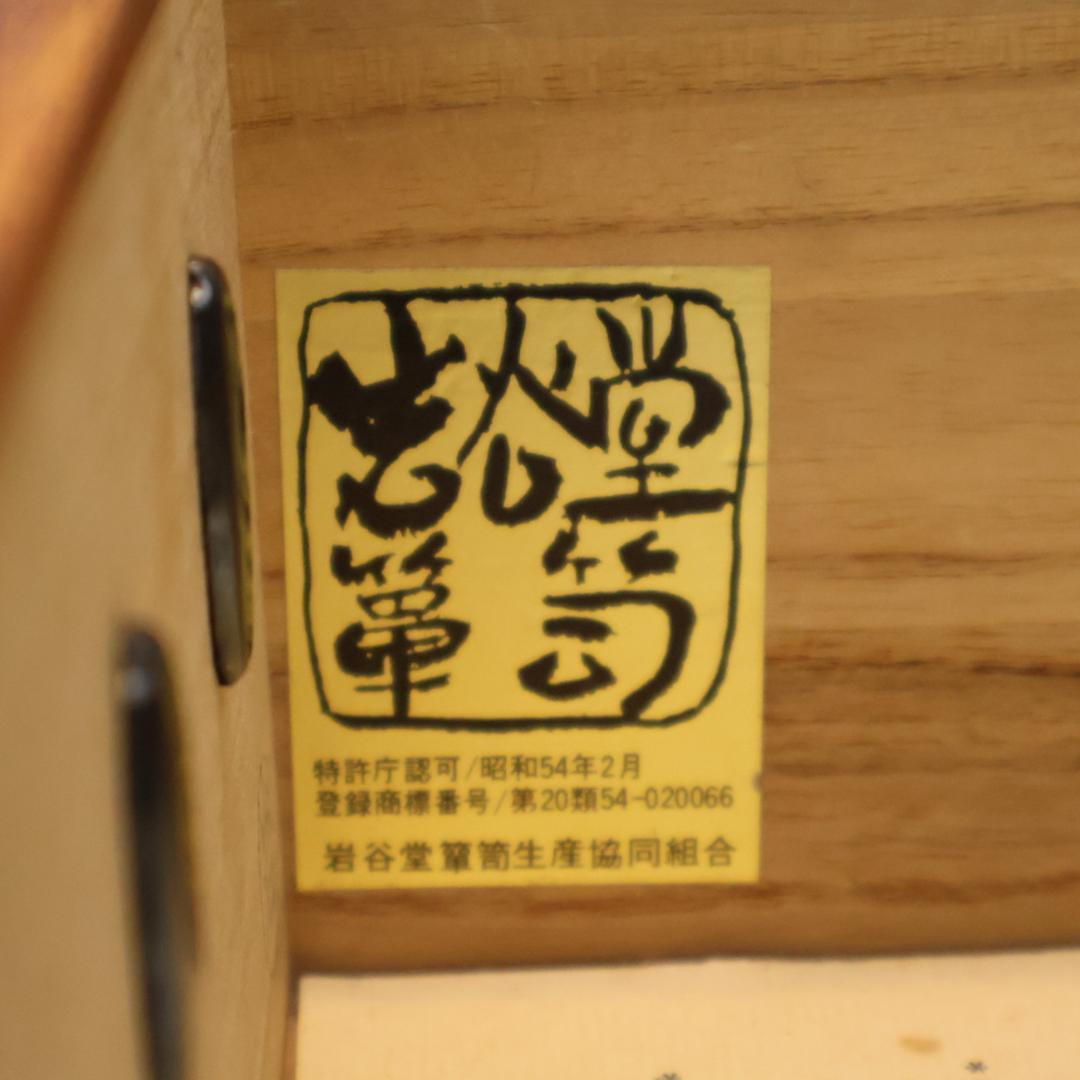 岩谷堂
箪笥
特許庁認可/昭和54年2月
登録商標番号/第20類54-020066
岩谷堂簞笥生産協同組合